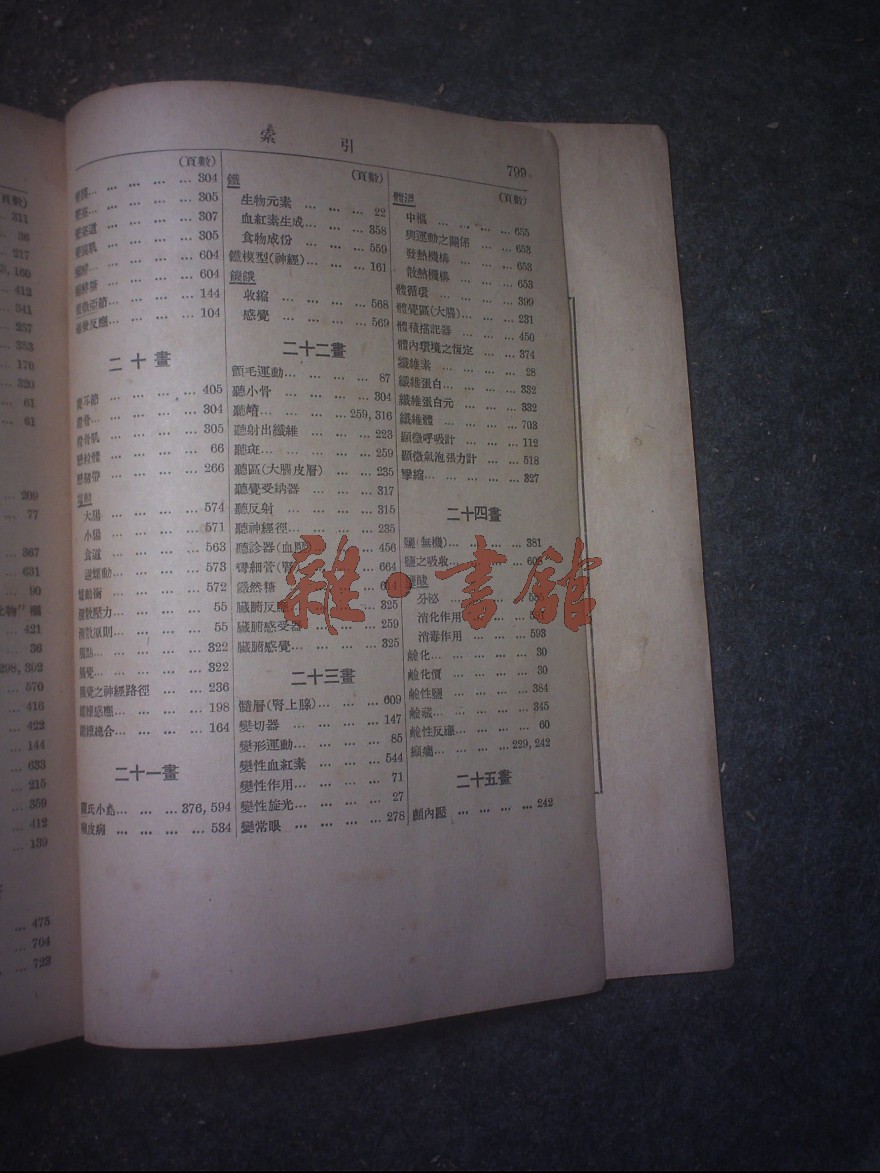 索 引
799
(頁數)
304
305
307
305
604
604
144
104
二十畫
405
骨 304
骨肌 305
66
266
大腸 574
小腸 571
食道 563
逆蠕動 573
572
壓力 55
原則 55
322
覺 322
覺之神經路徑 236
感應 198
總合 164
二十一畫
氏小島 376, 594
皮病 534
鐵 (頁數)
生物元素 22
血紅素生成 358
食物成份 559
鐵模型(神經) 161
饑餓
收縮 568
感覺 569
二十二畫
顫毛運動 87
聽小骨 304
聽嵴 259, 316
聽射出纖維 223
聽斑 259
聽區(大腦皮層) 235
聽覺受納器 317
聽反射 315
聽神經徑 235
聽診器(血 456
彎細管(腎 664
然糖
臟腑反應 325
臟腑感受器 259
臟腑感覺 325
二十三畫
髓層(腎上腺) 609
變切器 147
變形運動 85
變性血紅素 544
變性作用 71
變性旋光 27
變常眼 278
體溫 (頁數)
中樞 655
與運動之關係 653
發熱機構 653
散熱機構 653
體循環 399
體覺區(大腦) 231
體積描記器 450
體內環境之恆定 374
纖維素 28
纖維蛋白 332
纖維蛋白元 332
纖維體 703
顯微呼吸計 112
顯微氣泡張力計 518
攣縮 327
二十四畫
鹽(無機) 381
鹽之吸收 608
鹽酸
分泌
消化作用
消毒作用 593
鹼化 30
鹼化價 30
鹼性鹽 384
鹼藏 345
鹼性反應 60
癲癇 229, 242
二十五畫
顱內壓 242
雜·書館
頁數)
311
36
217
160
412
541
257
353
170
320
61
61
209
77
367
631
90
化物"欄
421
36
298, 302
570
416
422
144
633
215
359
412
139
475
704
723